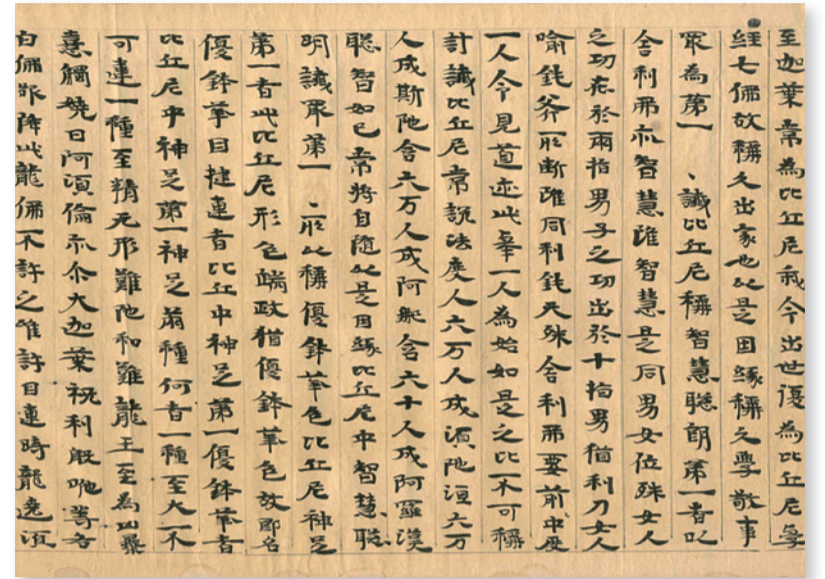 至迦葉常為比丘尼我今出世復為比丘尼學
經七佛故稱久出家也以是因緣稱久學敬事
眾為第一、識比丘尼稱智慧聰朗第一者以
舍利弗亦智慧唯智慧是同男女位殊女人
之功在於兩指男子之功出於十指男猶利刀女人
喻鈍斧所断雖同利鈍天殊舍利弗要前中後
一人令見道迹此舉一人為始如是之比不可稱
計識比丘尼常說法度人六万人成須陀洹六万
人成斯陀含六万人成阿那含六十人成阿羅漢
聰智如已常將自隨以是因緣比丘尼中智慧聰
明識眾第一、所以稱優鉢華色比丘尼神足
第一者此比丘尼形色端政猶優鉢華色故即名
優鉢華目揵連者比丘中神足第一優鉢華者
比丘尼中神足第一神足萬種何者一種至大不
可連一種至精无形難陀和難龍王至為凶暴
恚觸嬈日阿須倫亦尒大迦葉祝利般咃等各
白佛求降此龍佛不許之唯許目連時龍遶須